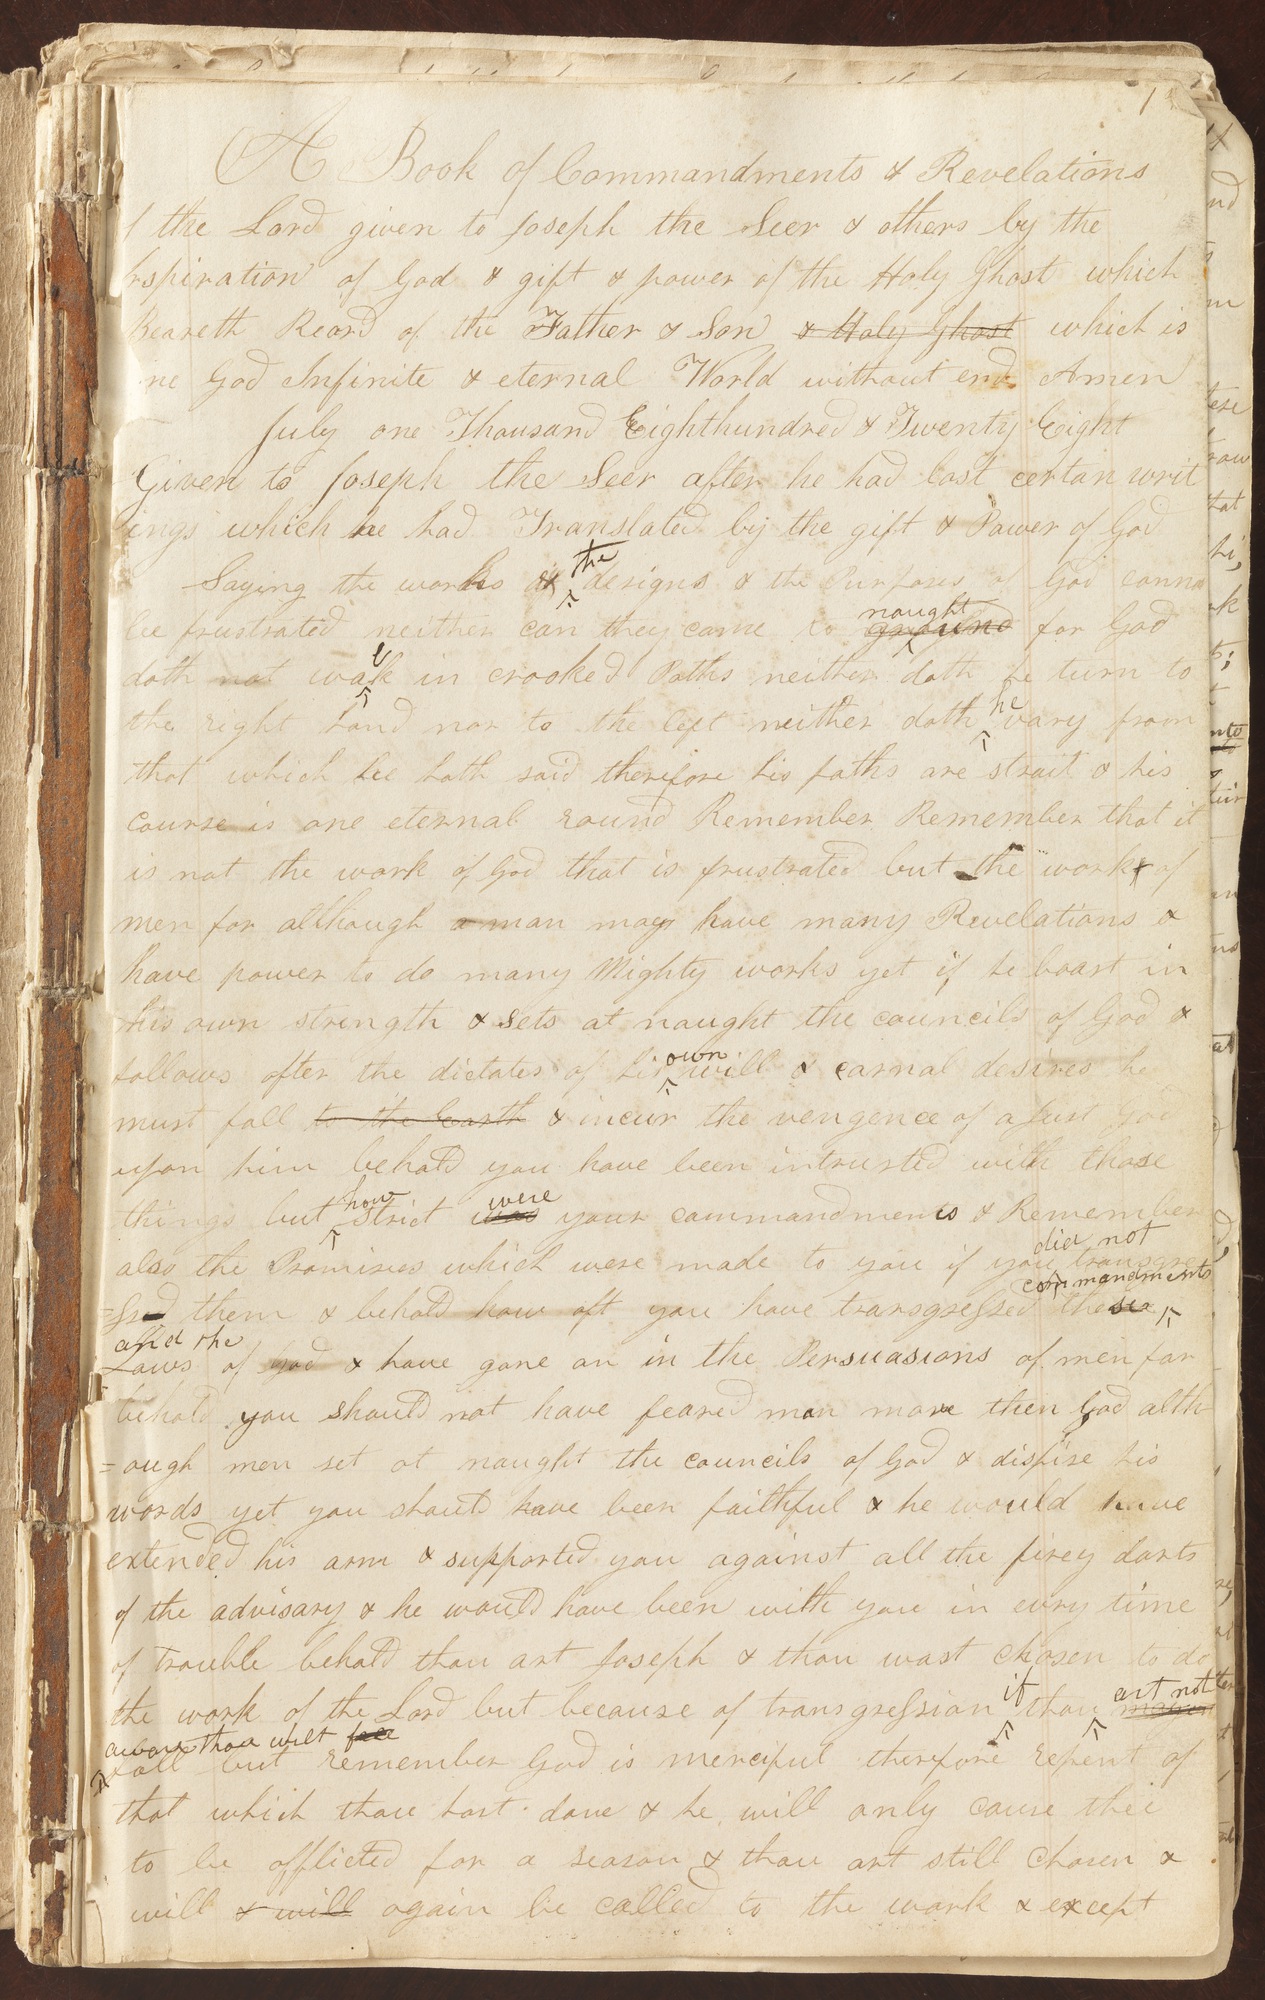 1
A Book of Commandments & Revelations
f the Lord given to Joseph the Seer & others by the
nspiration of God & gift & power of the Holy Ghost which
Beareth Reard of the Father & Son & Holy Ghost which is
ne God Infinite & eternal World without end Amen
July one Thousand Eighthundred & Twenty Eight
Given to Joseph the Seer after he had lost certan writ
ings which he had Translated by the gift & Power of God
the
Saying the works & designs & the Purposes of God canno
naught
be frustrated neither can they come to ground for God
l
doth not wak in crooked Paths neither doth he turn to
he
the right hand nor to the left neither doth vary from
that which he hath said therefore his paths are strait & his
course is one eternal round Remember Remember that it
is not the work of God that is frustrated but the work of
men for although a man may have many Revelations &
have power to do many Mighty works yet if he boast in
his own strength & sets at naught the councils of God &
own
follows after the dictates of his will & carnal desires he
must fall to the Earth & incur the vengence of a Just God
upon him behold you have been intrusted with those
how were
things but strict was your commandments & Remember
did not
also the Promises which were made to you if you transgre
commandments
=ssed them & behold how oft you have transgressed the
and the
Laws of God & have gone on in the Persuasions of men for
behold you should not have feared man more then God alth
=ough men set at naught the councils of God & dispise his
words yet you should have been faithful & he would have
extended his arm & supported you against all the firey darts
of the advisary & he would have been with you in evry time
of trouble behold thou art Joseph & thou wast chosen to do
if art not
the work of the Lord but because of transgression thou mayest
aware thou wilt fall
fall but remember God is merciful therefore repent of
that which thou hast done & he will only cause thee
to be afflicted for a season & thou art still chosen &
will & will again be called to the work & except